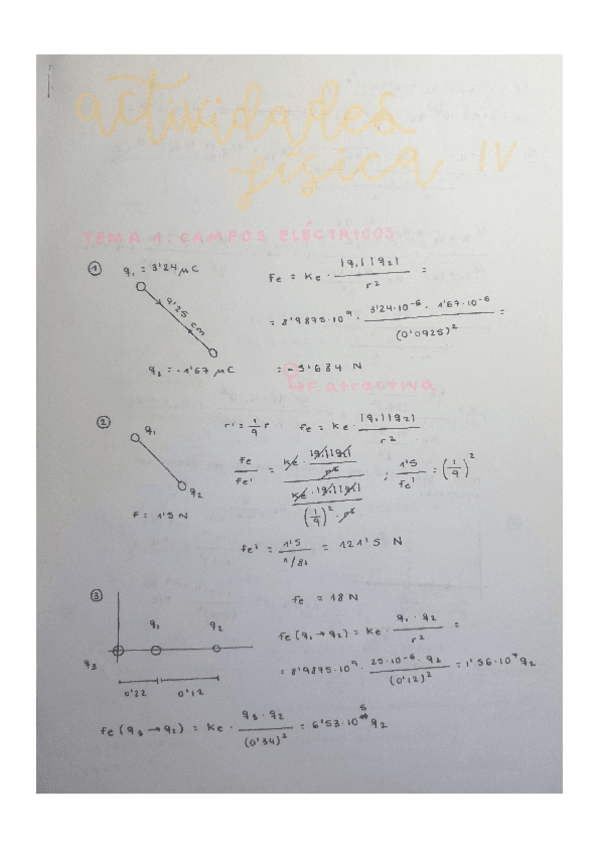 actividades
física IV
TEMA 1: CAMPOS ELÉCTRICOS
① q₁ = 3'24 μC
9'25 cm
q₂ = -1'67 μC
Fe = Ke · |q₁||q₂| / r² =
= 8'9875·10⁹ · 3'24·10⁻⁶ · 1'67·10⁻⁶ / (0'0925)² =
= -5'684 N
↳ F. atractiva
② q₁
q₂
F = 1'5 N
r' = 1/9 r fe = Ke · |q₁||q₂| / r²
fe / fe' = Ke · |q₁||q₂| / r² / Ke · |q₁||q₂| / (1/9)² · r² ; 1'5 / fe' = (1/9)²
fe' = 1'5 / 1/81 = 121'5 N
③ q₁ q₂
q₃
0'22 0'12
fe = 18 N
fe (q₁ → q₂) = Ke · q₁ · q₂ / r² =
= 8'9875·10⁹ · 25·10⁻⁶ · q₂ / (0'12)² = 1'56·10⁷ q₂
fe (q₃ → q₂) = Ke · q₃ · q₂ / (0'34)² = 6'53·10⁵ q₂